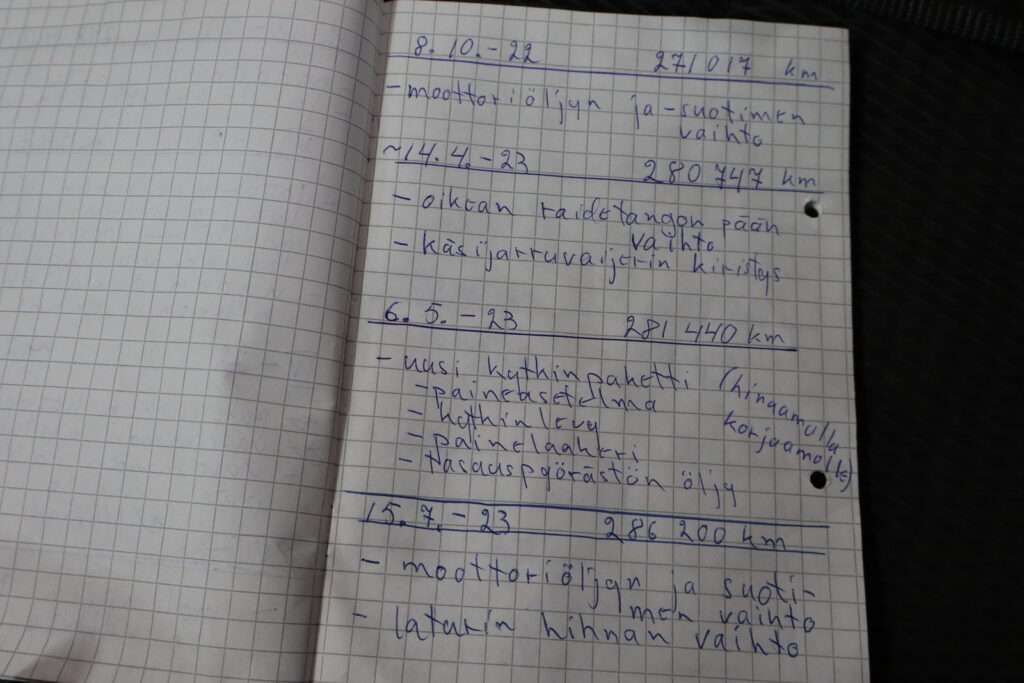 8. 10. - 22 271017 km
- moottoriöljyn ja - suotimen
vaihto
~14. 4. - 23 280 747 km
- oikean raidetangon pään
vaihto
- käsijarruvaijerin kiristys
6. 5. - 23 281 440 km
- uusi kytkinpaketti (hinaamolla
korjaamolle)
- paineasetelma
- kytkinlevy
- painelaakeri
- tasauspyörästön öljy
15. 7. - 23 286 200 km
- moottoriöljyn ja suoti-
men vaihto
- laturin hihnan vaihto